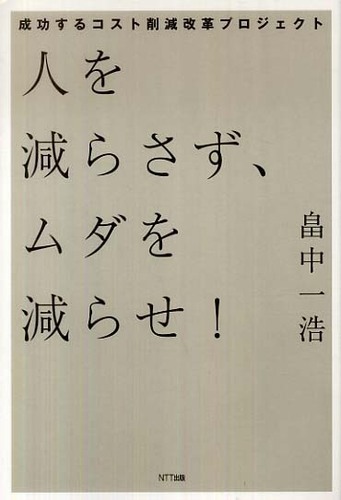 成功するコスト削減改革プロジェクト
人を
減らさず、
ムダを
減らせ!
畠中一浩
NTT出版